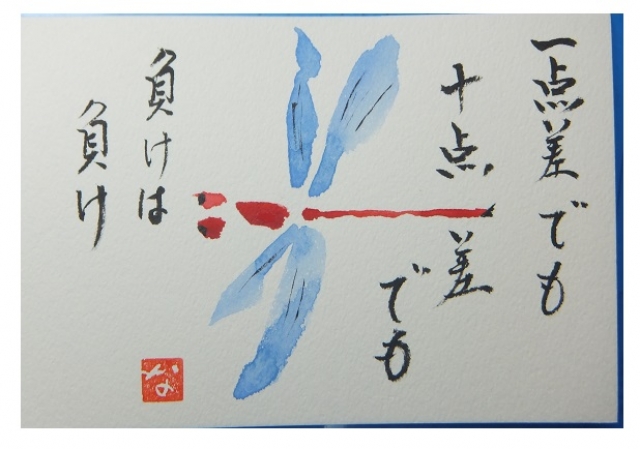 一点差でも
十点差
でも
負けは
負け